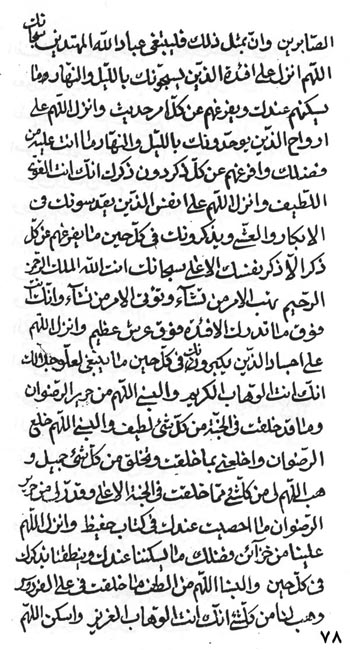 الصابرين وانّ بمثل ذلك فلينبغي عباد الله المهتدين سبحانك
اللهم انزل على افئدة الذين يسبحونك بالليل والنهار وما
يسكنهم عندك ويفرغهم عن كل امر حديث وانزل اللهم على
ارواح الذين يوحدونك بالليل والنهار ما انت عليه من
فضلك وافرغهم عن كل ذكر دون ذكرك انك انت القوي
اللطيف وانزل اللهم على انفس الذين يقدسونك في
الابكار والعشي ويذكرونك في كل حين ما يفرغهم عن كل
ذكر الا ذكر نفسك الاعلى سبحانك انت الله الملك الرحمن
الرحيم تهب الامر من تشاء وتؤتي الامر من تشاء وانك انت
فوق ما تدرك الافئدة فوق عرش عظيم وانزل اللهم
على اجساد الذين يكبرونك في كل حين ما ينبغي لعلو جلالك
انك انت الوهاب الكريم والبسني اللهم من حرير الرضوان
وما قد خلقت في الجنة من كل شيء لطيف والبسني اللهم خلع
الرضوان واخلعني بما خلقت وتخلق من كل شيء جميل و
هب اللهم لي من كل شيء مما خلقت في الجنة الاعلى وقدر لي من حرير
الرضوان ما احصيت عندك في كتاب حفيظ وانزل اللهم
علينا من خزائن فضلك ما يسكننا عندك وينطقنا بذكرك
في كل حين والبسنا اللهم من الطف ما خلقت في على الفردوس
وهب لنا من كل شيء انك انت الوهاب العزيز واسكن اللهم
٧٨